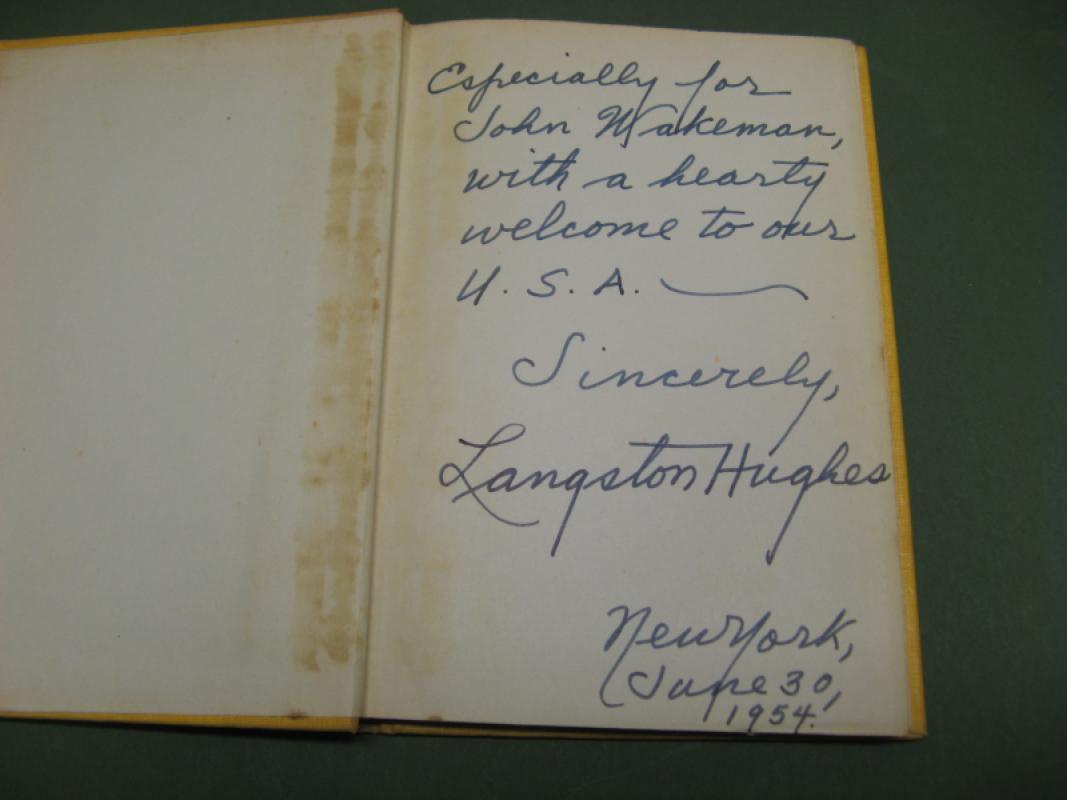 Especially for
John Wakeman,
with a hearty
welcome to our
U. S. A.
Sincerely,
Langston Hughes
New York,
June 30,
1954.